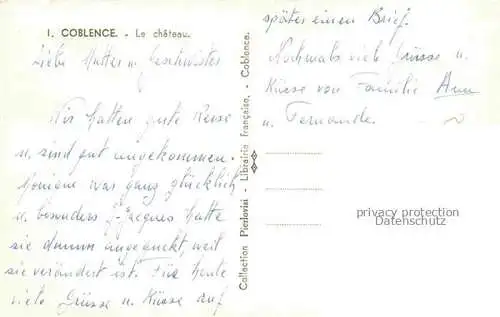 1. COBLENCE. - Le château.
Liebe Mutter u. Geschwister
Wir hatten gute Reise
u. sind gut angekommen.
Monique was ganz glücklich
u. besonders J-Jacques hatte
sie dumm angeguckt, weil
sie verändert ist. Für heute
viele Grüsse u. Küsse auf
Collection Pierlovisi - Librairie Française, - Coblence.
spätes einen Brief.
Nochmals viele Grüsse u.
Küsse von Familie
u. Fernande.
privacy protection
Datenschutz